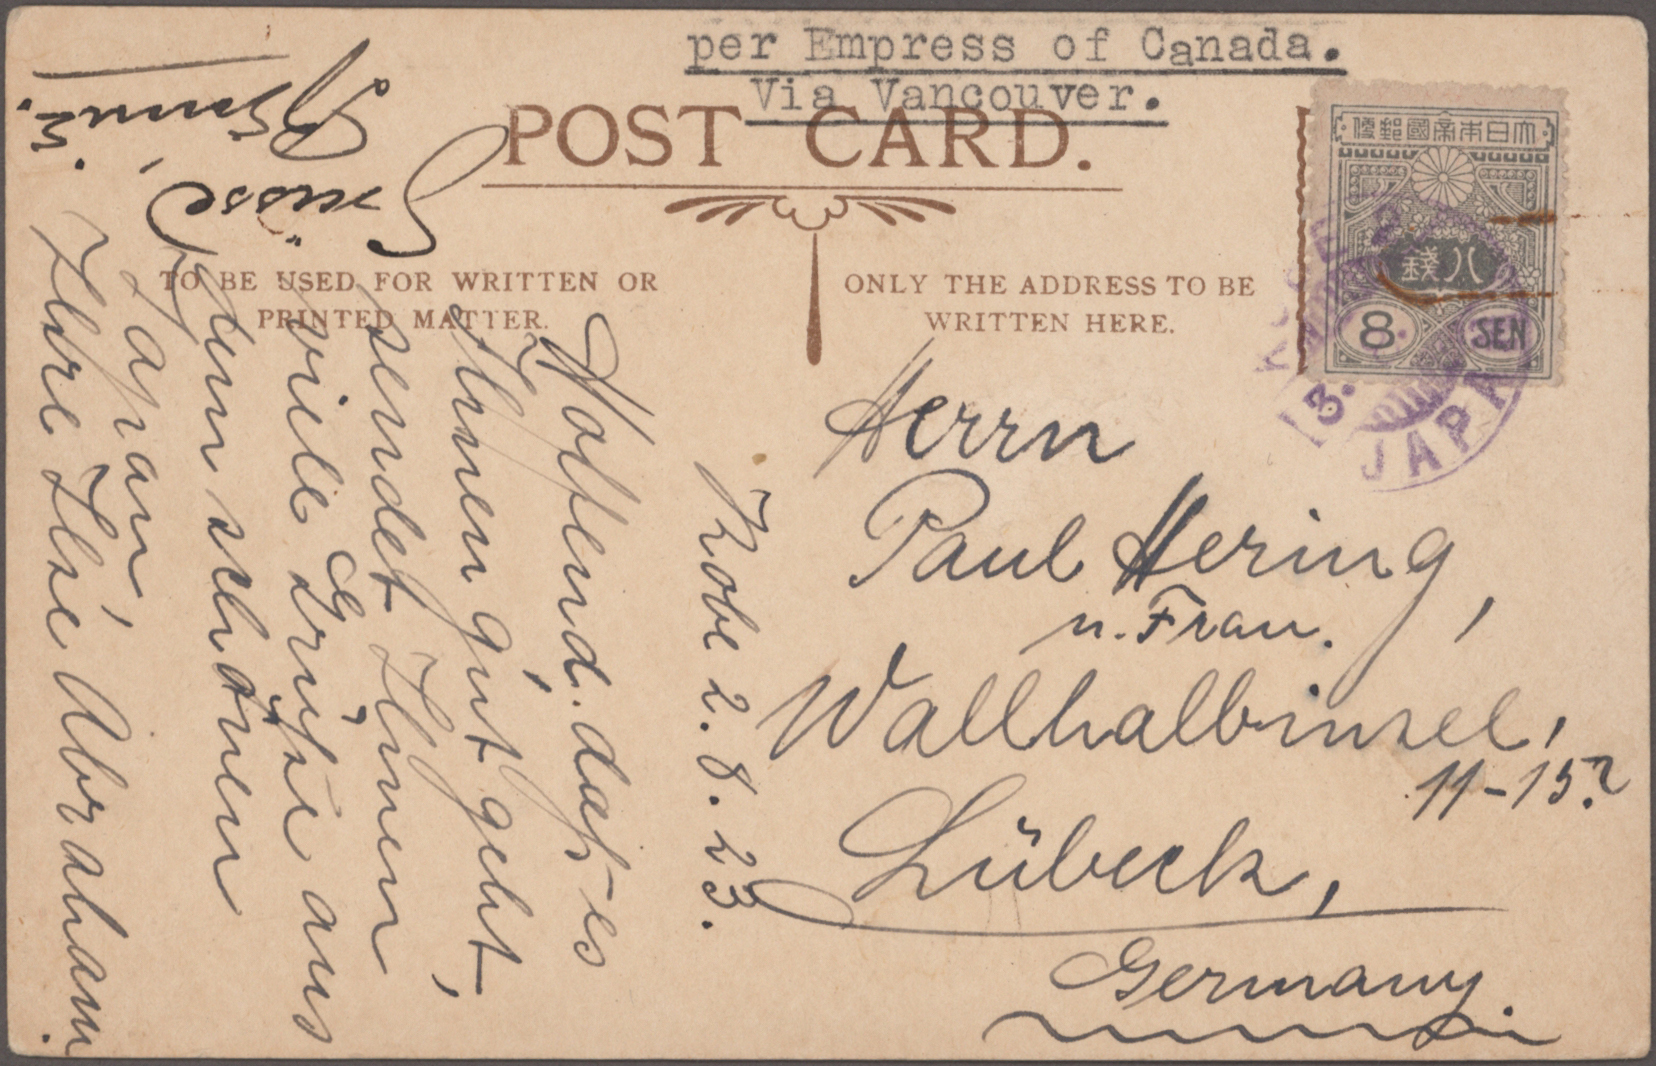 per Empress of Canada.
Via Vancouver.
POST CARD.
TO BE USED FOR WRITTEN OR
PRINTED MATTER.
ONLY THE ADDRESS TO BE
WRITTEN HERE.
大日本帝國郵便
八錢
8 SEN
JAPAN
Kobe 2. 8. 23.
Hoffend, daß es
Ihnen gut geht,
sendet Ihnen
viele Grüße aus
dem schönen
Japan,
Ihre Ilse Abraham.
Grüsse
Herrn
Paul Hering,
u. Frau.
Wallhalbinsel,
11-15?
Lübeck,
Germany.